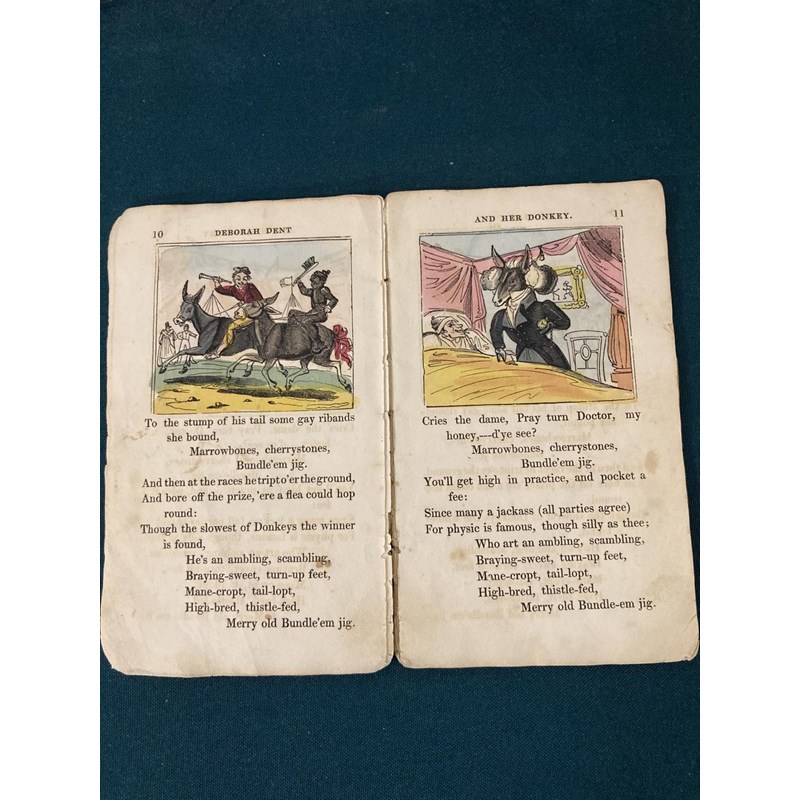 10
DEBORAH DENT
To the stump of his tail some gay ribands
she bound,
Marrowbones, cherrystones,
Bundle'em jig.
And then at the races he tript o'er the ground,
And bore off the prize, 'ere a flea could hop
round:
Though the slowest of Donkeys the winner
is found,
He's an ambling, scambling,
Braying-sweet, turn-up feet,
Mane-cropt, tail-lopt,
High-bred, thistle-fed,
Merry old Bundle'em jig.
AND HER DONKEY.
11
Cries the dame, Pray turn Doctor, my
honey,—d'ye see?
Marrowbones, cherrystones,
Bundle'em jig.
You'll get high in practice, and pocket a
fee:
Since many a jackass (all parties agree)
For physic is famous, though silly as thee;
Who art an ambling, scambling,
Braying-sweet, turn-up feet,
Mane-cropt, tail-lopt,
High-bred, thistle-fed,
Merry old Bundle-em jig.